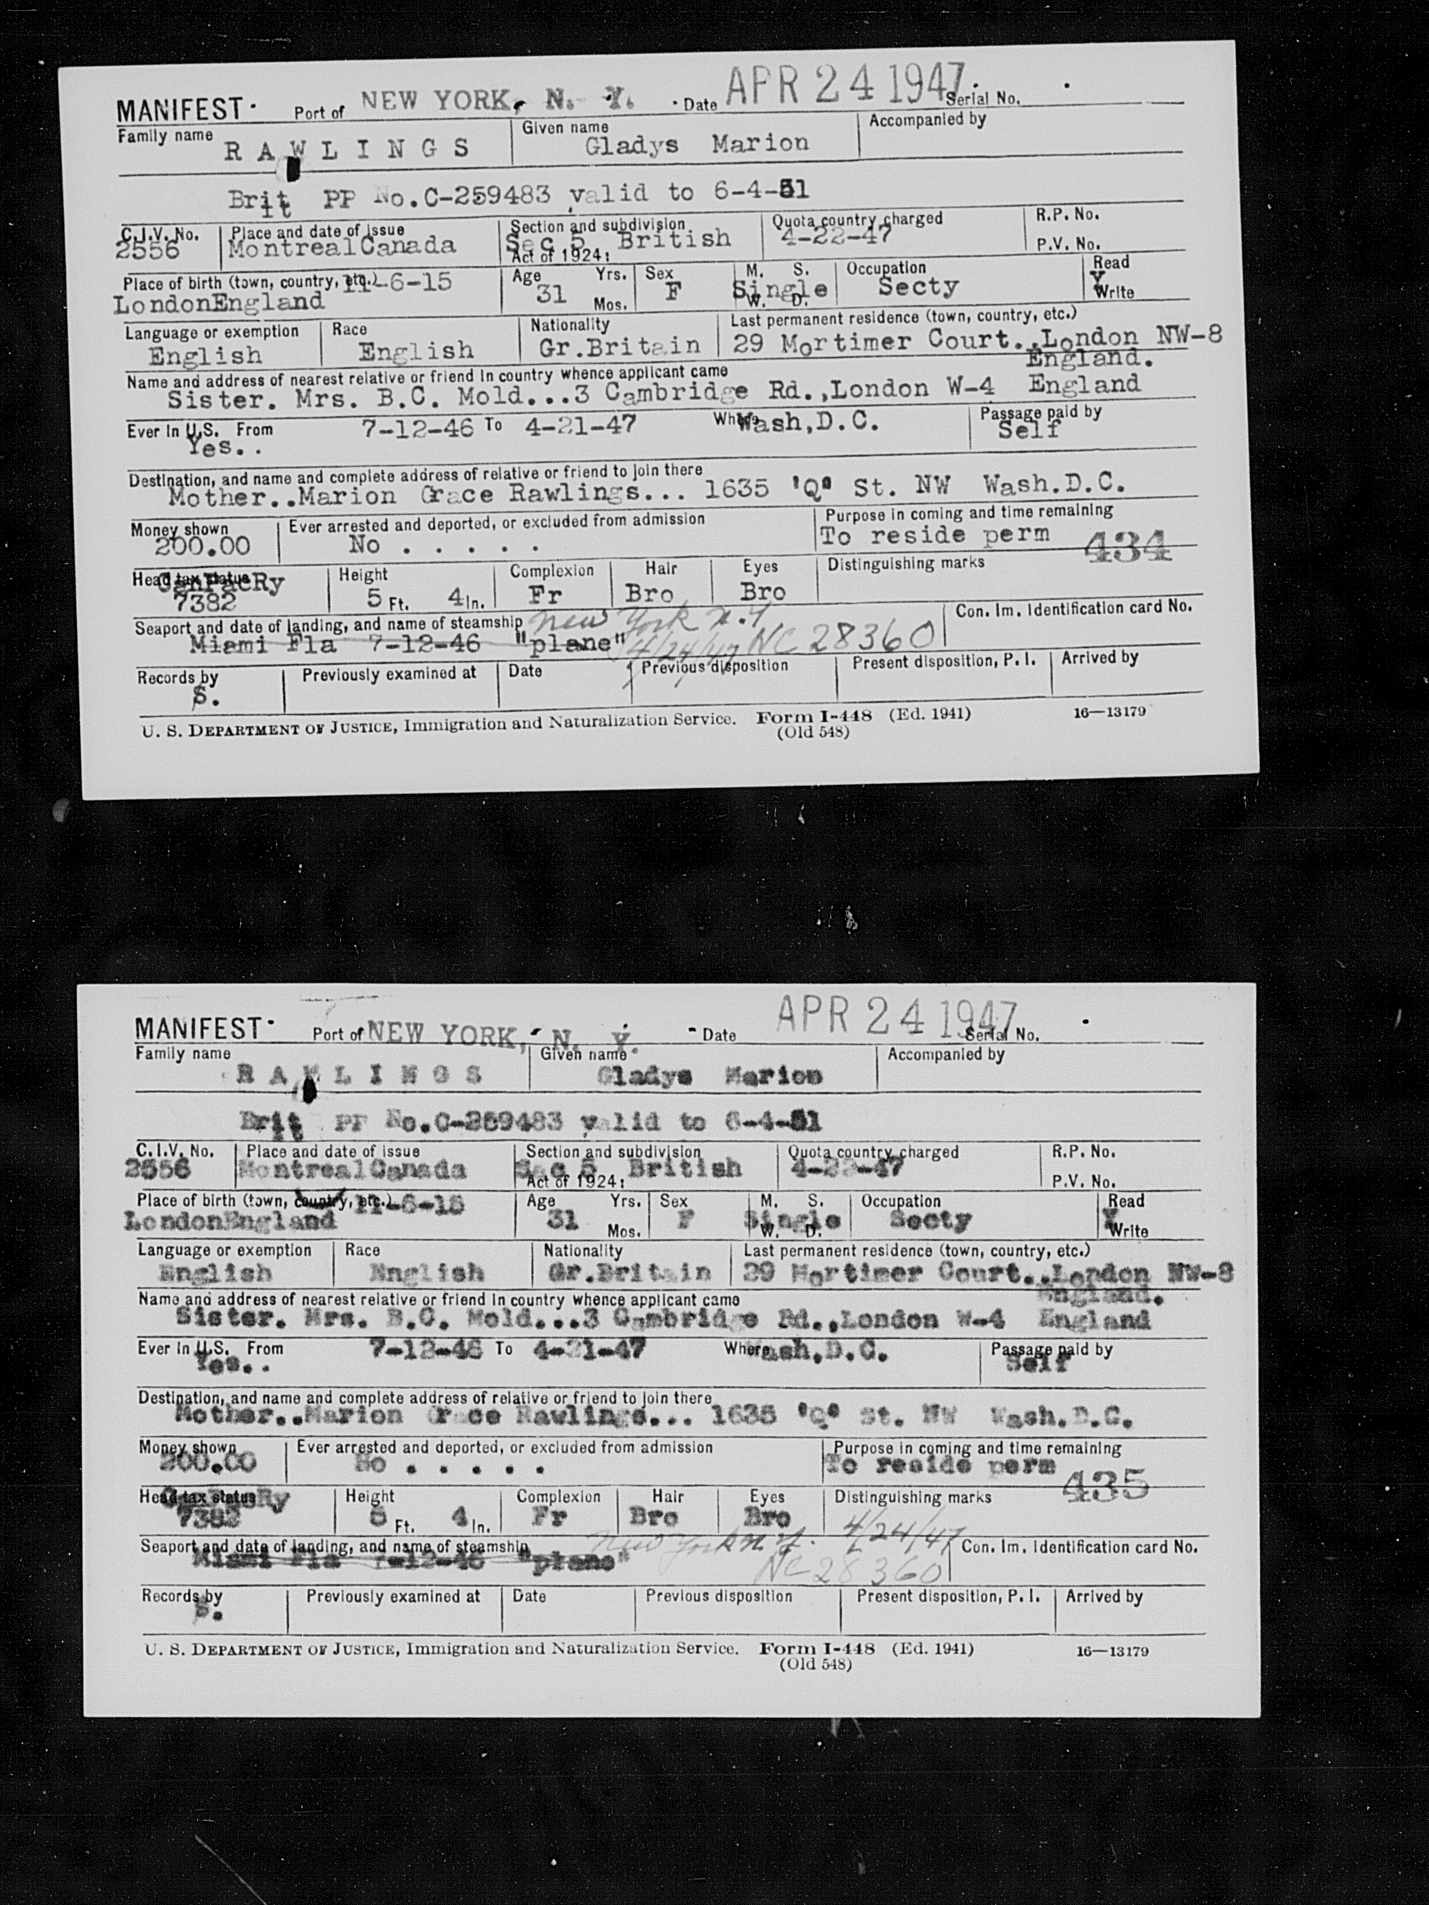 MANIFEST Port of NEW YORK, N. Y. Date APR 24 1947 Serial No.
Family name RAWLINGS Given name Gladys Marion Accompanied by
Brit PP No. C-259483 valid to 6-4-51
C.I.V. No. 2556 Place and date of issue Montreal Canada Section and subdivision Sec 5 British Act of 1924: Quota country charged 4-22-47 R.P. No. P.V. No.
Place of birth (town, country, etc.) 11-6-15 London England Age 31 Yrs. Mos. Sex F M. S. W. D. Single Occupation Secty Read Y Write
Language or exemption English Race English Nationality Gr.Britain Last permanent residence (town, country, etc.) 29 Mortimer Court..London NW-8 England.
Name and address of nearest relative or friend in country whence applicant came
Sister. Mrs. B.C. Mold...3 Cambridge Rd.,London W-4 England
Ever in U.S. Yes.. From 7-12-46 To 4-21-47 Where Wash,D.C. Passage paid by Self
Destination, and name and complete address of relative or friend to join there
Mother..Marion Grace Rawlings... 1635 'Q' St. NW Wash.D.C.
Money shown 200.00 Ever arrested and deported, or excluded from admission No . . . . . Purpose in coming and time remaining To reside perm 434
Head tax status CanPacRy 7382 Height 5 Ft. 4 In. Complexion Fr Hair Bro Eyes Bro Distinguishing marks
Seaport and date of landing, and name of steamship Miami Fla 7-12-46 "plane" New York N.Y 4/24/47 NC 28360 Con. Im. Identification card No.
Records by S. Previously examined at Date Previous disposition Present disposition, P. I. Arrived by
U. S. DEPARTMENT OF JUSTICE, Immigration and Naturalization Service. Form I-448 (Ed. 1941) 16—13179
(Old 548)
MANIFEST Port of NEW YORK, N. Y. Date APR 24 1947 Serial No.
Family name RAWLINGS Given name Gladys Marion Accompanied by
Brit PP No. C-259483 valid to 6-4-51
C.I.V. No. 2556 Place and date of issue Montreal Canada Section and subdivision Sec 5 British Act of 1924: Quota country charged 4-22-47 R.P. No. P.V. No.
Place of birth (town, country, etc.) 11-6-15 London England Age 31 Yrs. Mos. Sex F M. S. W. D. Single Occupation Secty Read Y Write
Language or exemption English Race English Nationality Gr.Britain Last permanent residence (town, country, etc.) 29 Mortimer Court..London NW-8 England.
Name and address of nearest relative or friend in country whence applicant came
Sister. Mrs. B.C. Mold...3 Cambridge Rd.,London W-4 England
Ever in U.S. Yes.. From 7-12-46 To 4-21-47 Where Wash,D.C. Passage paid by Self
Destination, and name and complete address of relative or friend to join there
Mother..Marion Grace Rawlings... 1635 'Q' St. NW Wash.D.C.
Money shown 200.00 Ever arrested and deported, or excluded from admission No . . . . . Purpose in coming and time remaining To reside perm 435
Head tax status CanPacRy 7382 Height 5 Ft. 4 In. Complexion Fr Hair Bro Eyes Bro Distinguishing marks 4/24/47
Seaport and date of landing, and name of steamship Miami Fla 7-12-46 "plane" New York N.Y. NC 28360 Con. Im. Identification card No.
Records by S. Previously examined at Date Previous disposition Present disposition, P. I. Arrived by
U. S. DEPARTMENT OF JUSTICE, Immigration and Naturalization Service. Form I-448 (Ed. 1941) 16—13179
(Old 548)